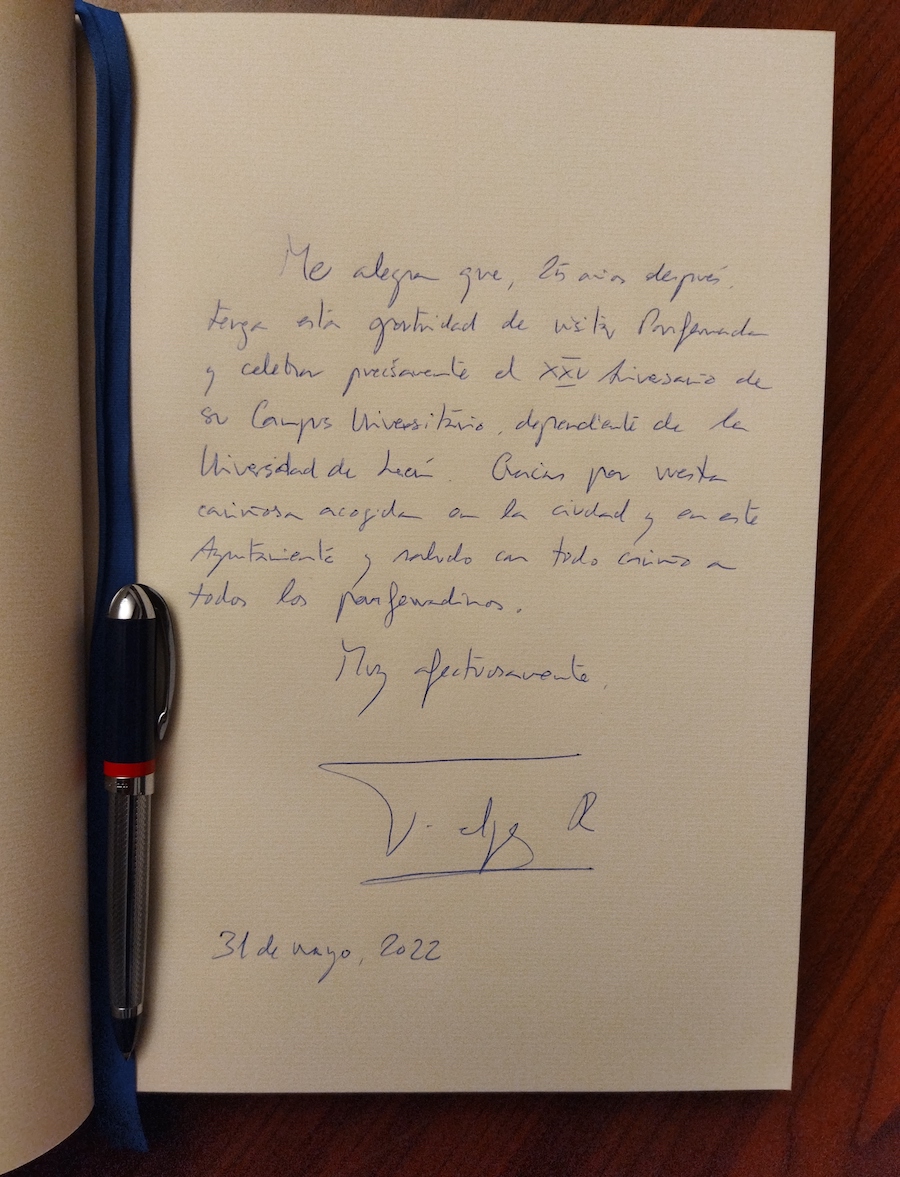 Me alegra que, 25 años después,
tenga esta oportunidad de visitar Ponferrada
y celebrar precisamente el XXV Aniversario de
su Campus Universitario, dependiente de la
Universidad de León. Gracias por vuestra
cariñosa acogida en la ciudad y en este
Ayuntamiento y saludo con todo cariño a
todos los ponferradinos.
Muy afectuosamente,
Felipe R
31 de mayo, 2022